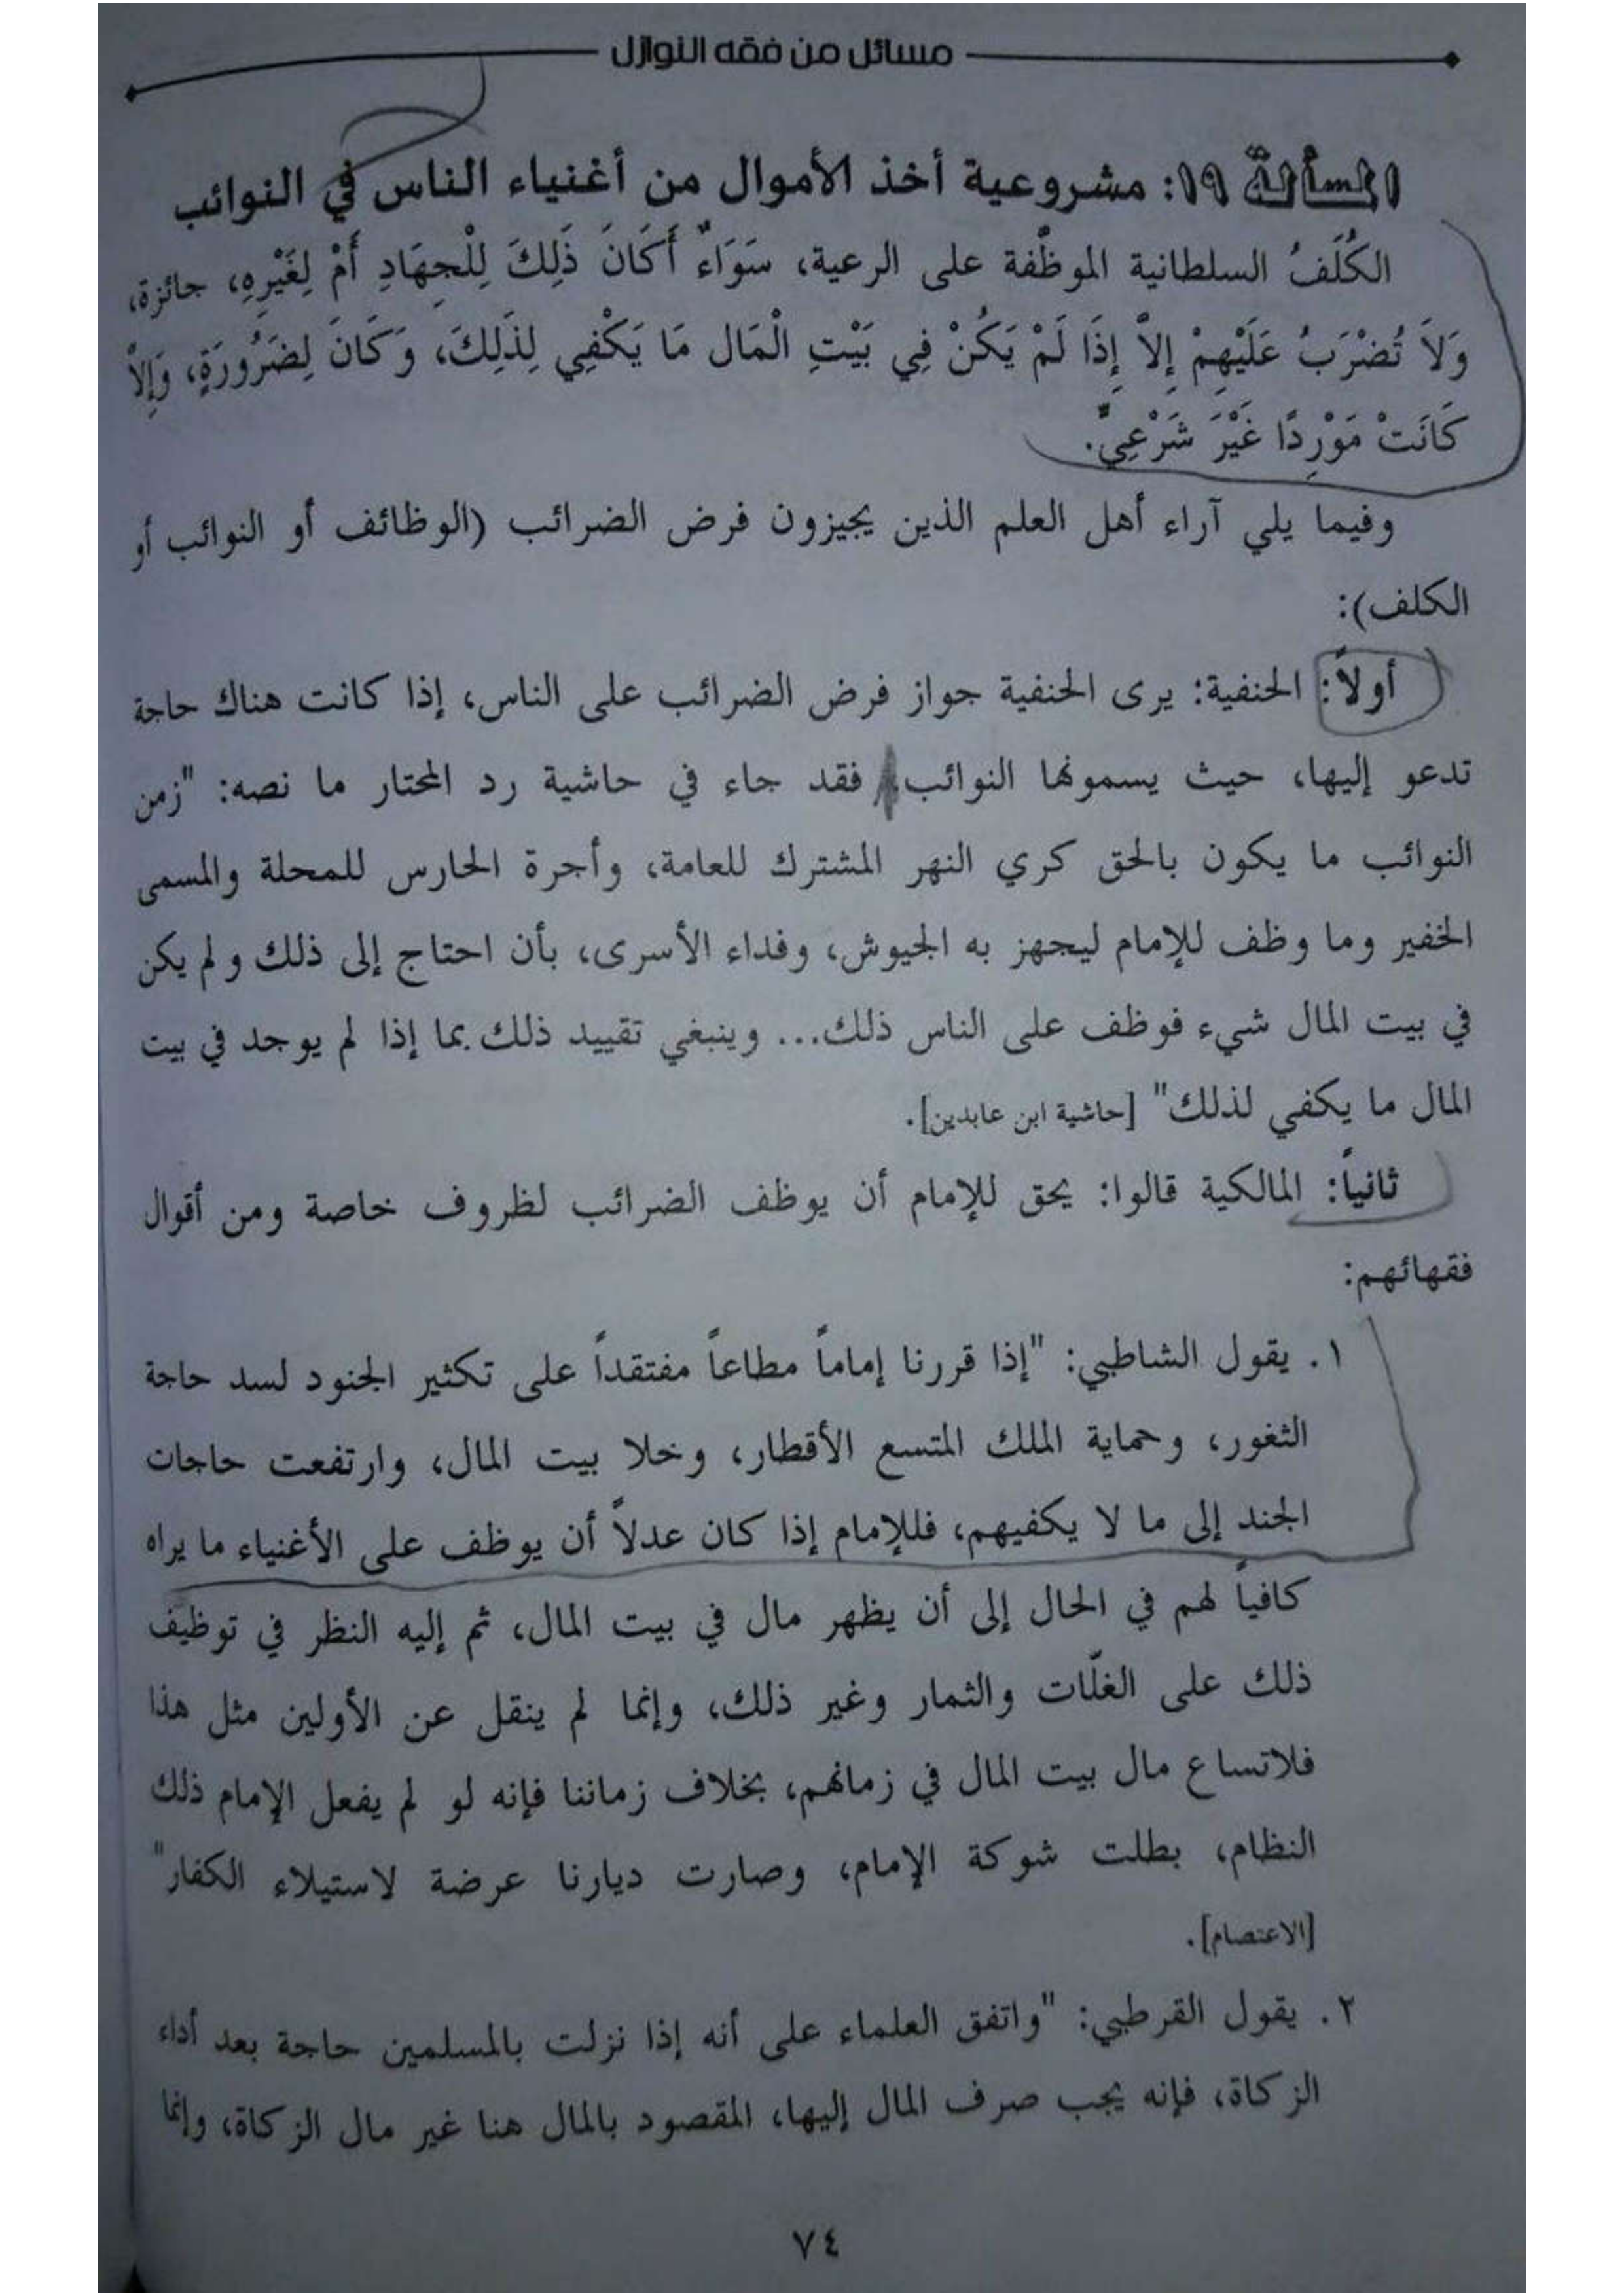 مسائل من فقه النوازل
المسألة ١٩: مشروعية أخذ الأموال من أغنياء الناس في النوائب
الكُلَفُ السلطانية الموظّفة على الرعية، سَوَاءٌ أَكَانَ ذَلِكَ لِلْجِهَادِ أَمْ لِغَيْرِهِ، جائزة،
وَلاَ تُضْرَبُ عَلَيْهِمْ إِلاَّ إِذَا لَمْ يَكُنْ فِي بَيْتِ الْمَال مَا يَكْفِي لِذَلِكَ، وَكَانَ لِضَرُورَةٍ، وَإِلاَّ
كَانَتْ مَوْرِدًا غَيْرَ شَرْعِيٍّ.
وفيما يلي آراء أهل العلم الذين يجيزون فرض الضرائب (الوظائف أو النوائب أو
الكلف):
أولاً: الحنفية: يرى الحنفية جواز فرض الضرائب على الناس، إذا كانت هناك حاجة
تدعو إليها، حيث يسمونها النوائب فقد جاء في حاشية رد المحتار ما نصه: "زمن
النوائب ما يكون بالحق كري النهر المشترك للعامة، وأجرة الحارس للمحلة والمسمى
الخفير وما وظف للإمام ليجهز به الجيوش، وفداء الأسرى، بأن احتاج إلى ذلك ولم يكن
في بيت المال شيء فوظف على الناس ذلك... وينبغي تقييد ذلك بما إذا لم يوجد في بيت
المال ما يكفي لذلك" [حاشية ابن عابدين].
ثانياً: المالكية قالوا: يحق للإمام أن يوظف الضرائب لظروف خاصة ومن أقوال
فقهائهم:
١. يقول الشاطبي: "إذا قررنا إماماً مطاعاً مفتقداً على تكثير الجنود لسد حاجة
الثغور، وحماية الملك المتسع الأقطار، وخلا بيت المال، وارتفعت حاجات
الجند إلى ما لا يكفيهم، فللإمام إذا كان عدلاً أن يوظف على الأغنياء ما يراه
كافياً لهم في الحال إلى أن يظهر مال في بيت المال، ثم إليه النظر في توظيف
ذلك على الغلّات والثمار وغير ذلك، وإنما لم ينقل عن الأولين مثل هذا
فلاتساع مال بيت المال في زمانهم، بخلاف زماننا فإنه لو لم يفعل الإمام ذلك
النظام، بطلت شوكة الإمام، وصارت ديارنا عرضة لاستيلاء الكفار"
[الاعتصام].
٢. يقول القرطبي: "واتفق العلماء على أنه إذا نزلت بالمسلمين حاجة بعد أداء
الزكاة، فإنه يجب صرف المال إليها، المقصود بالمال هنا غير مال الزكاة، وإنما
٧٤